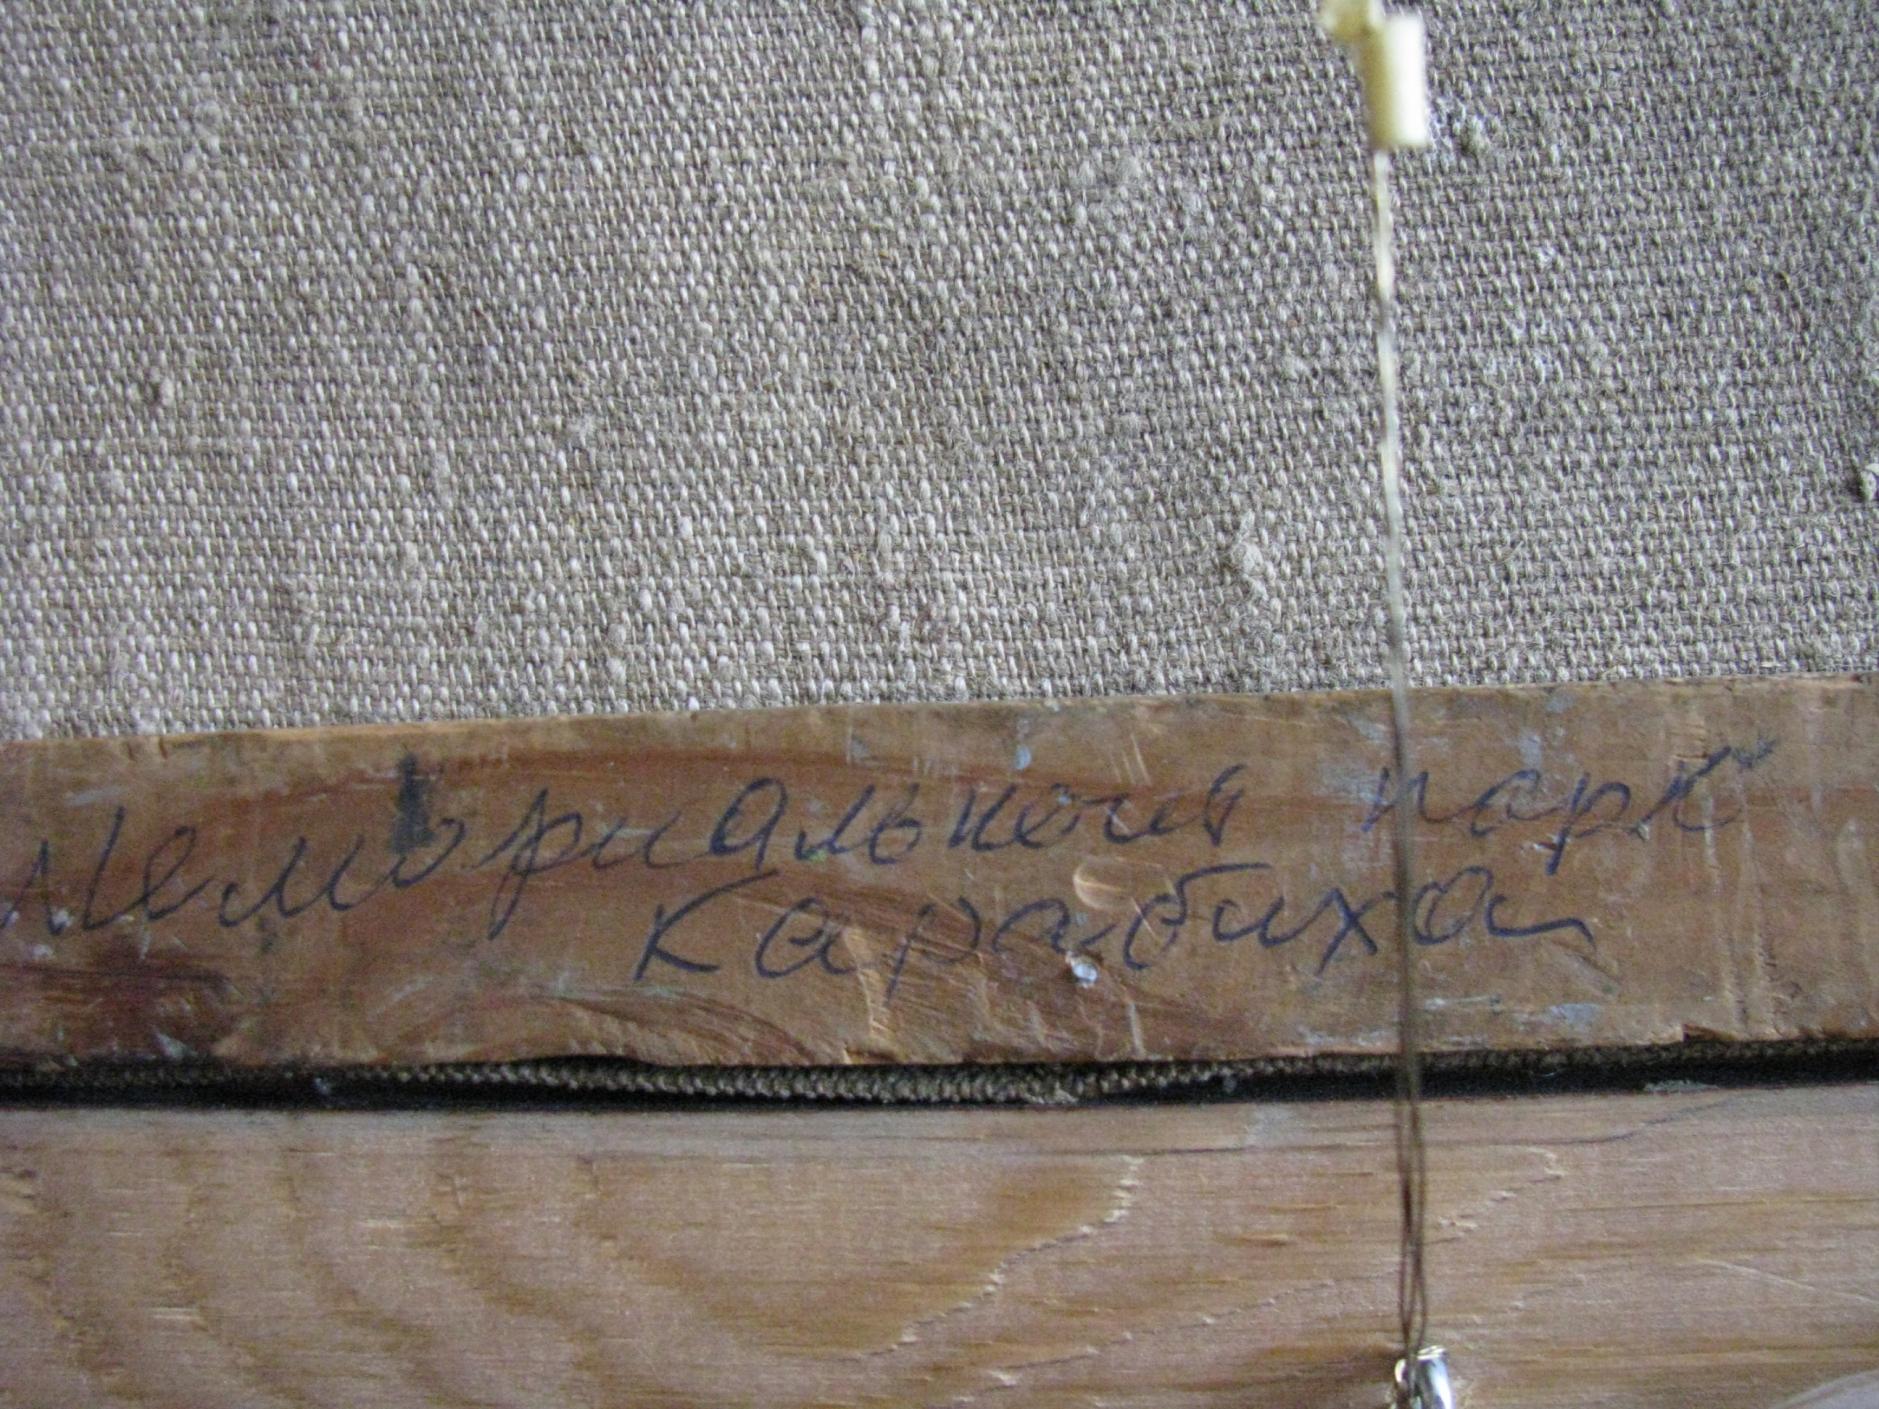 Мемориальный парк
Карабиха